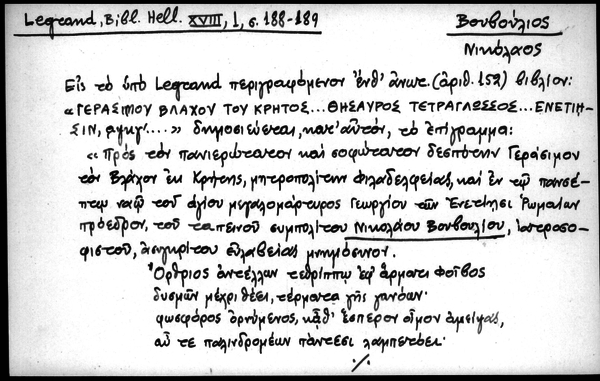 Legrand, Bibl. Hell. XVIII, 1, σ. 188-189
Βουβούλιος
Νικόλαος
Εἰς τὸ ὑπὸ Legrand περιγραφόμενον ἐνθ' ἀνωτ. (ἀριθ. 152) βιβλίον:
«ΓΕΡΑΣΙΜΟΥ ΒΛΑΧΟΥ ΤΟΥ ΚΡΗΤΟΣ... ΘΗΣΑΥΡΟΣ ΤΕΤΡΑΓΛΩΣΣΟΣ... ΕΝΕΤΙΗ-
ΣΙΝ, ͵αψκγ'....» δημοσιεύεται, κατ' αὐτόν, τὸ ἐπίγραμμα:
« Πρὸς τὸν πανιερώτατον καὶ σοφώτατον δεσπότην Γεράσιμον
τὸν Βλάχον ἐκ Κρήτης, μητροπολίτην Φιλαδελφείας, καὶ ἐν τῷ πανσέ-
πτῳ ναῷ τοῦ ἁγίου μεγαλομάρτυρος Γεωργίου τῶν Ἐνετίῃσι Ῥωμαίων
πρόεδρον, τοῦ ταπεινοῦ συμπολίτου Νικολάου Βουβουλίου, ἰατροσο-
φιστοῦ, ἀσυγκρίτου εὐλαβείας μνημόσυνον.
Ὄρθριος ἀντέλλων τεθρίππῳ ἐφ' ἅρματι Φοῖβος
δυσμῶν μέχρι θέει, τέρματα γῆς γανόων·
φωσφόρος ὀρνύμενος, κᾆθ' ἕσπερον οἶμον ἀμείψας,
αὖ τε παλινδρομέων πάντεσι λαμπετάει·
./.